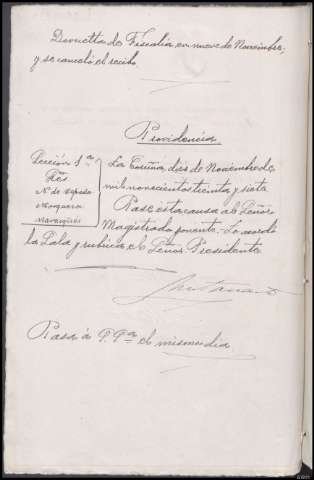 Devuelta de Fiscalia en nueve de Noviembre,
y se canceló el recibo
Providencia
Sección 1ª
Sres
Marquina
La Coruña, dias de Noviembre de
mil novecientos treinta y siete
Pase esta causa al Señor
Magistrado ponente. Lo acordó
la Sala y rubrica el Señor Presidente
Pasa á P. Pª el mismo dia